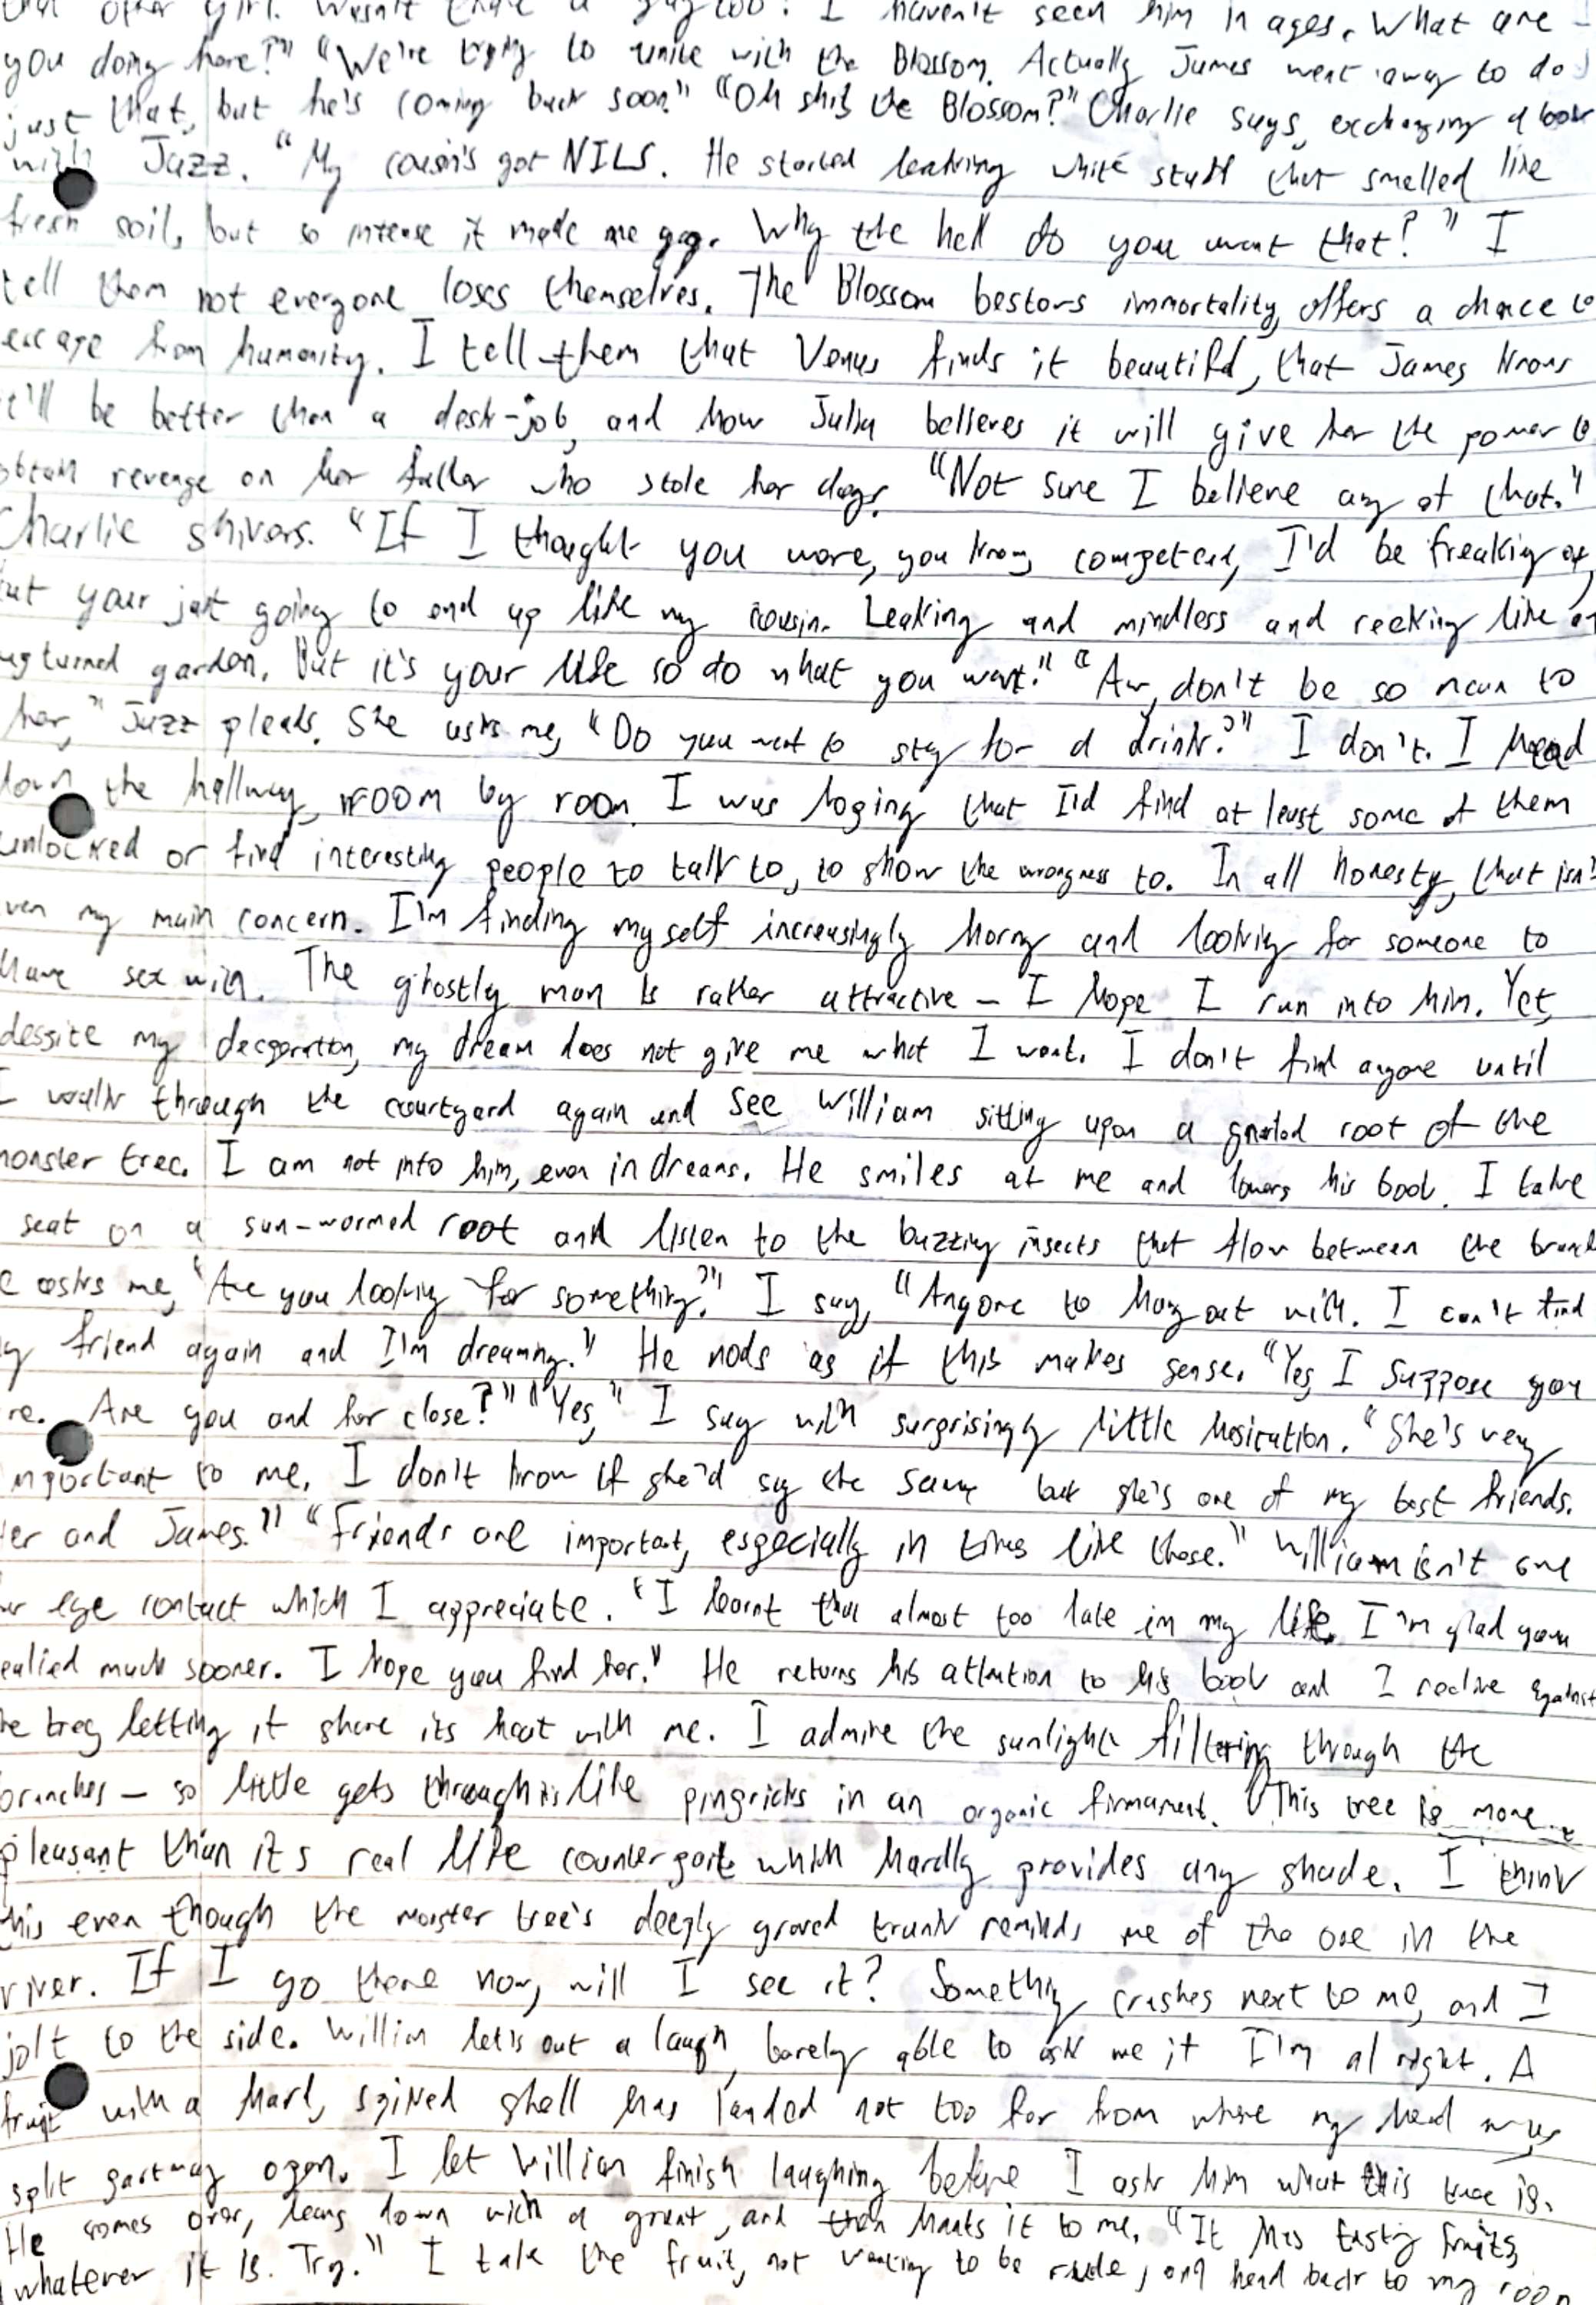 that other girl. Wasn't there a guy too? I haven't seen him in ages. What are
you doing here?" "We're trying to unite with the Blossom. Actually James went away to do
just that, but he's coming back soon." "Oh shit the Blossom?" Charlie says, exchanging a look
with Jazz. "My cousin's got NILS. He started leaking white stuff that smelled like
fresh soil, but so intense it made me gag. Why the hell do you want that?" I
tell them not everyone loses themselves. The Blossom bestows immortality, offers a chance to
escape from humanity. I tell them that Venus finds it beautiful, that James knows
it'll be better than a desk-job, and how Julia believes it will give her the power to
obtain revenge on her father who stole her dog. "Not sure I believe any of that."
Charlie shivers. "If I thought you were, you know, competent, I'd be freaking out,
but your just going to end up like my cousin. Leaking and mindless and reeking like an
upturned garden. But it's your life so do what you want." "Aw, don't be so mean to
her," Jazz pleads. She asks me, "Do you want to stay for a drink?" I don't. I head
down the hallway, room by room. I was hoping that I'd find at least some of them
unlocked or find interesting people to talk to, to show the wrongness to. In all honesty, that isn't
even my main concern. I'm finding myself increasingly horny and looking for someone to
have sex with. The ghostly man is rather attractive - I hope I run into him. Yet,
despite my desperation, my dream does not give me what I want. I don't find anyone until
I walk through the courtyard again and see William sitting upon a gnarled root of the
monster tree. I am not into him, even in dreams. He smiles at me and lowers his book. I take
seat on a sun-warmed root and listen to the buzzing insects that flow between the branch
e asks me, "Are you looking for something?" I say, "Anyone to hang out with. I can't find
my friend again and I'm dreaming." He nods as if this makes sense. "Yes, I suppose you
re. Are you and her close?" "Yes," I say with surprisingly little hesitation. "She's very
important to me. I don't know if she'd say the same but she's one of my best friends.
Her and James." "Friends are important, especially in times like these." William isn't one
for eye contact which I appreciate. "I learnt that almost too late in my life. I'm glad you
ealied much sooner. I hope you find her." He returns his attention to his book and I recline against
the tree, letting it share its heat with me. I admire the sunlight filtering through the
branches - so little gets through its like pinpricks in an organic firmament. This tree is more
pleasant than its real life counterpart which hardly provides any shade. I think
this even though the monster tree's deeply groved trunk reminds me of the one in the
river. If I go there now, will I see it? Something crashes next to me, and I
jolt to the side. William let's out a laugh, barely able to ask me if I'm al right. A
fruit with a hard, spiked shell has landed not too far from where my head was,
split partway open. I let William finish laughing before I ask him what this tree is.
He comes over, leans down with a grunt, and then hands it to me. "It has tasty fruits,
whatever it is. Try." I take the fruit, not wanting to be rude, and head back to my room